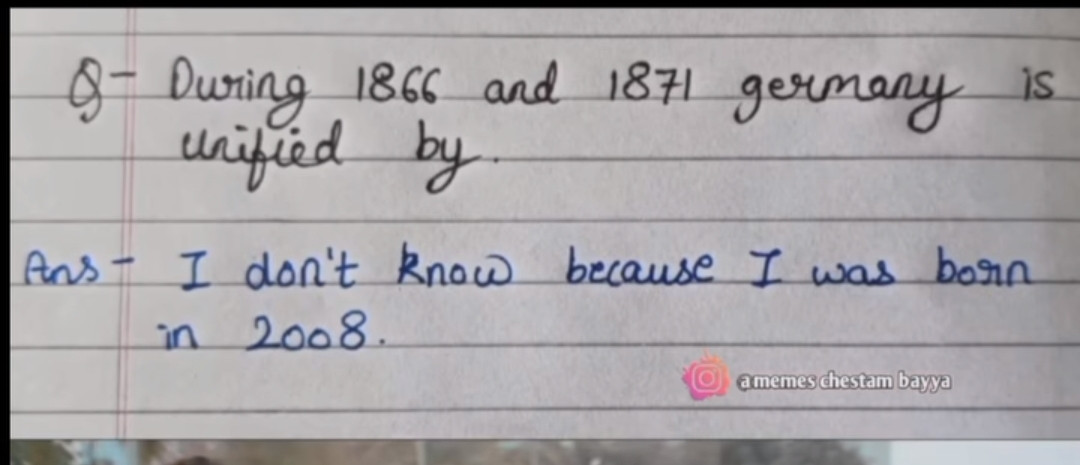 Q- During 1866 and 1871 germany is
unified by.
Ans- I don't know because I was born
in 2008.
a memes chestam bayya